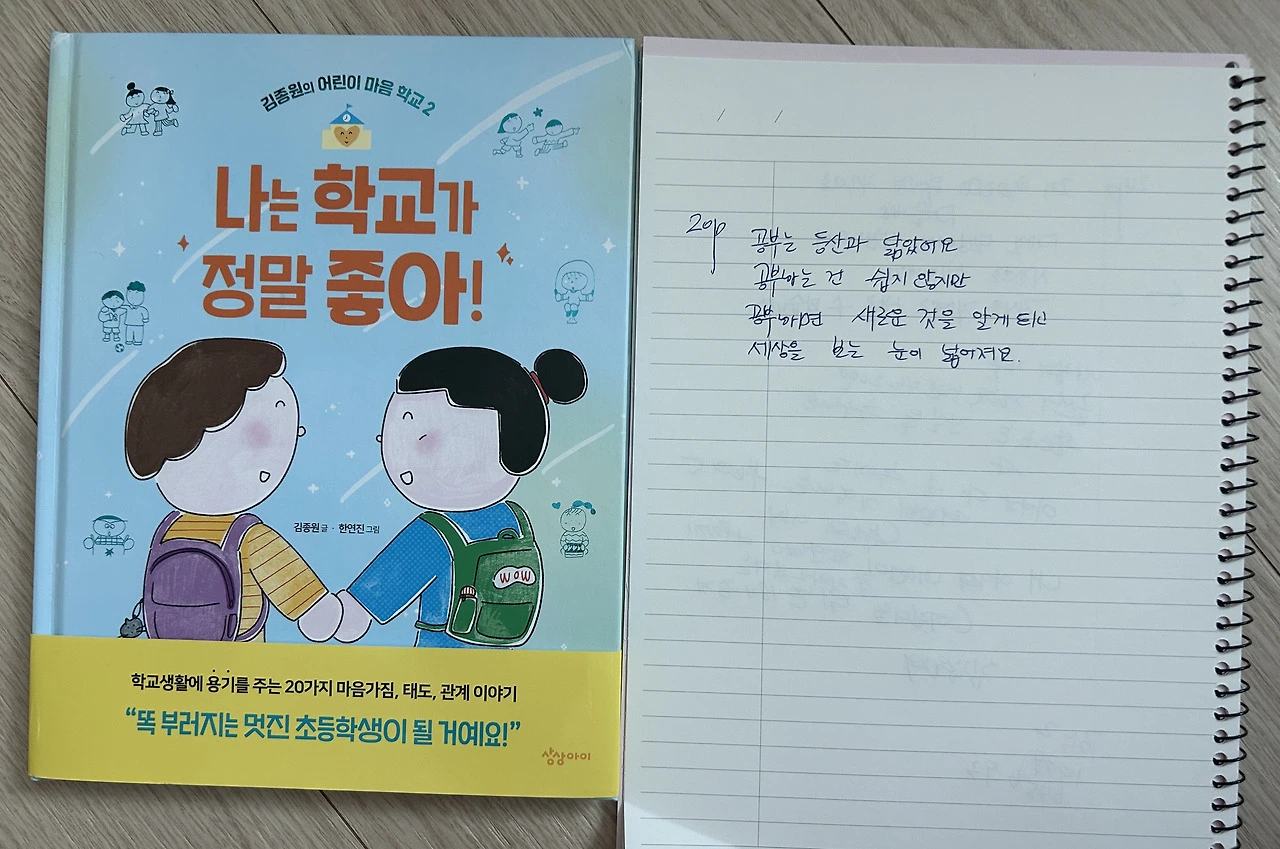 김종원의 어린이 마음 학교 2
나는 학교가
정말 좋아!
김종원 글 · 한연진 그림
WOW
학교생활에 용기를 주는 20가지 마음가짐, 태도, 관계 이야기
“똑 부러지는 멋진 초등학생이 될 거예요!”
상상아이
20p
공부는 등산과 닮았어요
공부하는 건 쉽지 않지만
공부하면 새로운 것을 알게 되고
세상을 보는 눈이 넓어져요.